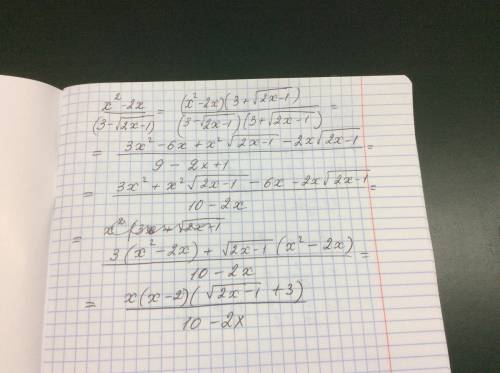 (x² - 2x)/(3 - √(2x-1)) = ((x² - 2x)(3 + √(2x-1)))/((3 - √(2x-1))(3 + √(2x-1))) =
= (3x² - 6x + x²√(2x-1) - 2x√(2x-1))/(9 - 2x + 1) =
= (3x² + x²√(2x-1) - 6x - 2x√(2x-1))/(10 - 2x) =
= (3(x² - 2x) + √(2x-1)(x² - 2x))/(10 - 2x) =
= (x(x-2)(√(2x-1) + 3))/(10 - 2x)